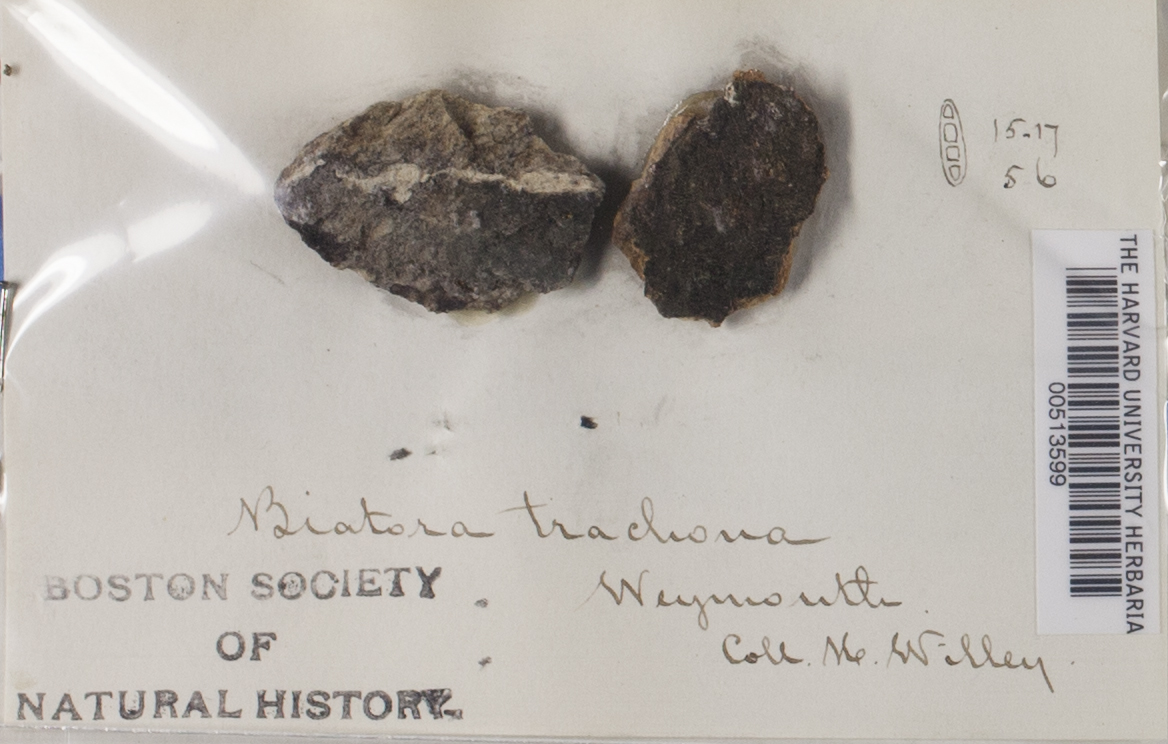 15-17
5 6
THE HARVARD UNIVERSITY HERBARIA
00513599
Biatora trachona
Weymouth.
Coll. H. Willey.
BOSTON SOCIETY
OF
NATURAL HISTORY.